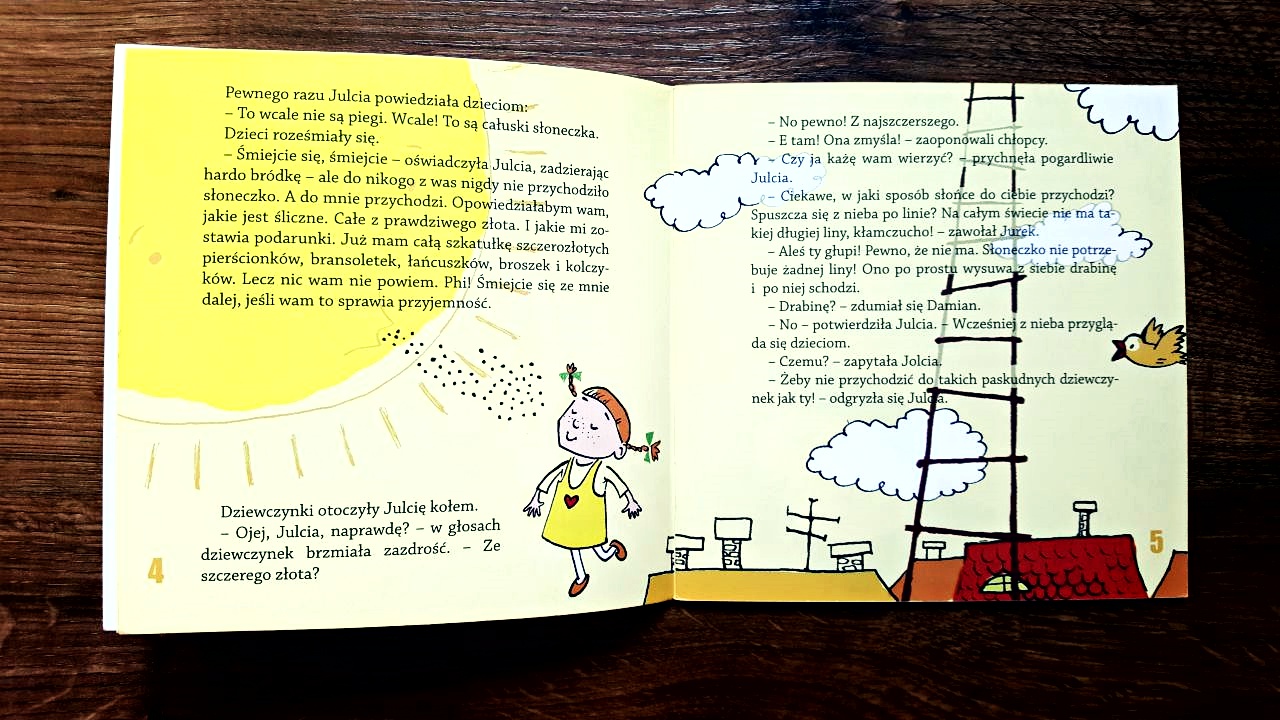 Pewnego razu Julcia powiedziała dzieciom:
– To wcale nie są piegi. Wcale! To są całuski słoneczka.
Dzieci roześmiały się.
– Śmiejcie się, śmiejcie – oświadczyła Julcia, zadzierając
hardo bródkę – ale do nikogo z was nigdy nie przychodziło
słoneczko. A do mnie przychodzi. Opowiedziałabym wam,
jakie jest śliczne. Całe z prawdziwego złota. I jakie mi zo-
stawia podarunki. Już mam całą szkatułkę szczerozłotych
pierścionków, bransoletek, łańcuszków, broszek i kolczy-
ków. Lecz nic wam nie powiem. Phi! Śmiejcie się ze mnie
dalej, jeśli wam to sprawia przyjemność.
Dziewczynki otoczyły Julcię kołem.
– Ojej, Julcia, naprawdę? – w głosach
dziewczynek brzmiała zazdrość. – Ze
szczerego złota?
4
– No pewno! Z najszczerszego.
– E tam! Ona zmyśla! – zaoponowali chłopcy.
– Czy ja każę wam wierzyć? – prychnęła pogardliwie
Julcia.
– Ciekawe, w jaki sposób słońce do ciebie przychodzi?
Spuszcza się z nieba po linie? Na całym świecie nie ma ta-
kiej długiej liny, kłamczucho! – zawołał Jurek.
– Aleś ty głupi! Pewno, że nie ma. Słoneczko nie potrze-
buje żadnej liny! Ono po prostu wysuwa z siebie drabinę
i po niej schodzi.
– Drabinę? – zdumiał się Damian.
– No – potwierdziła Julcia. – Wcześniej z nieba przyglą-
da się dzieciom.
– Czemu? – zapytała Jolcia.
– Żeby nie przychodzić do takich paskudnych dziewczy-
nek jak ty! – odgryzła się Julcia.
5